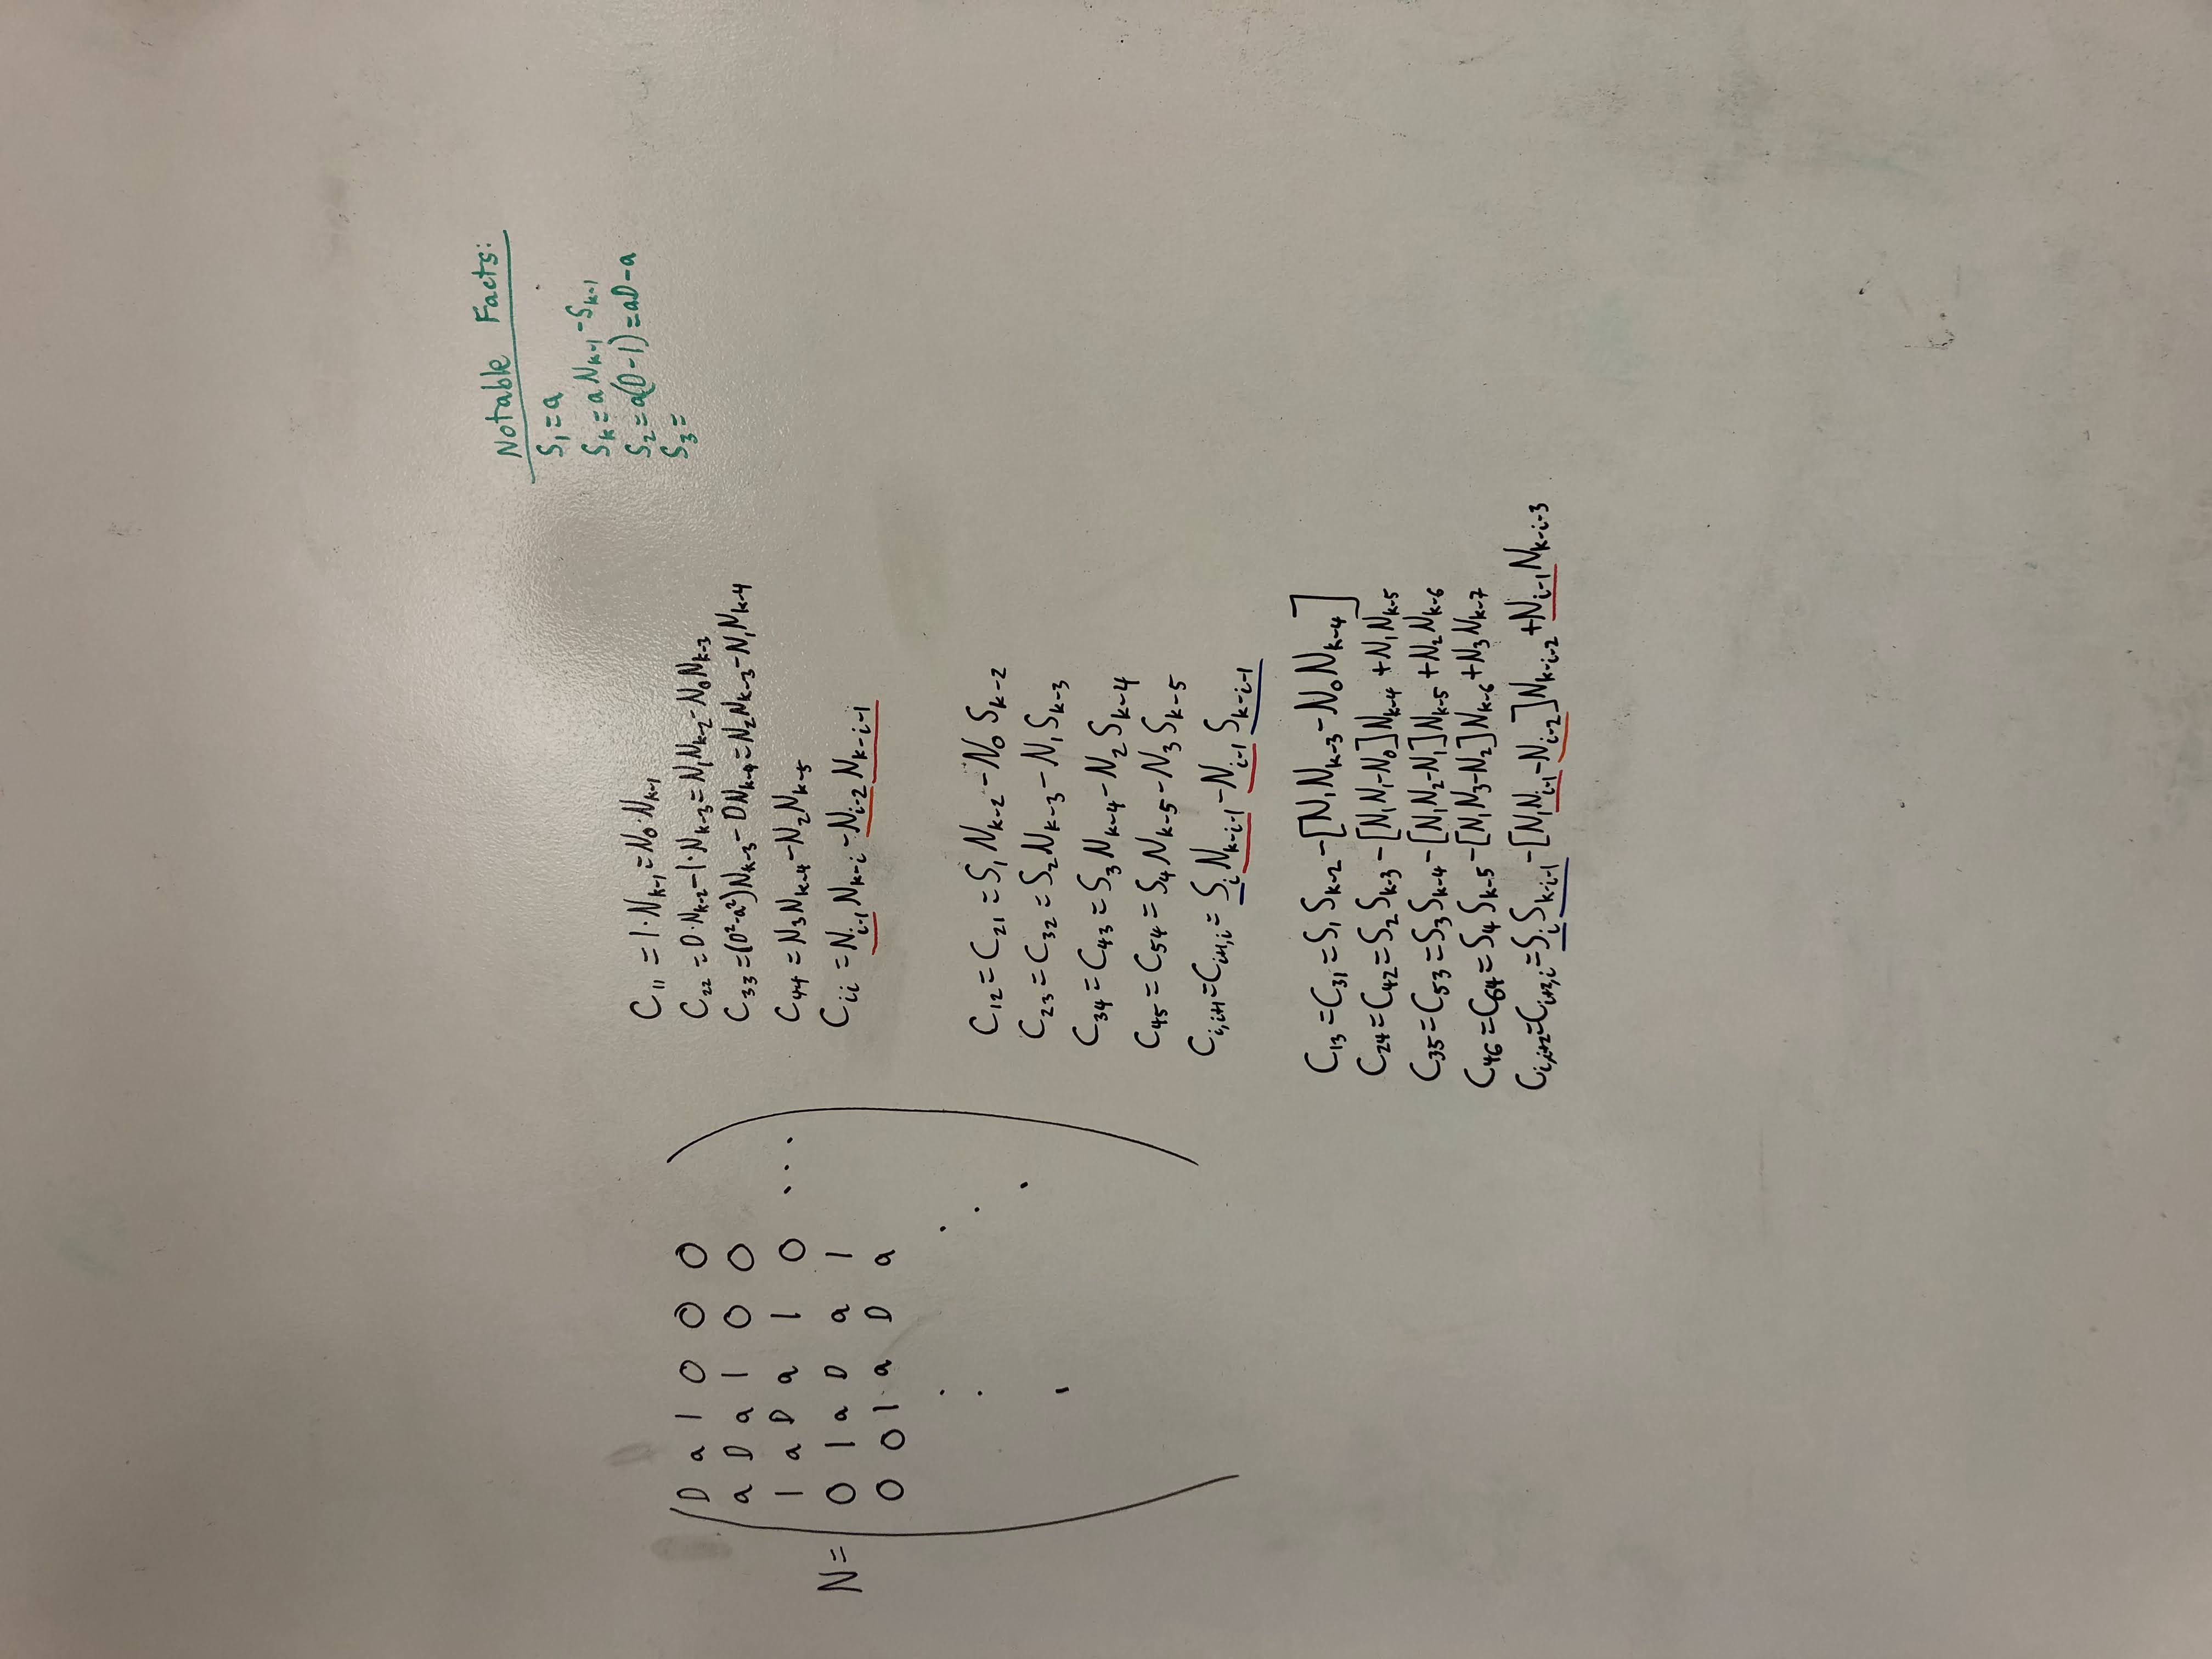 N=
D a 1 0 0 0
a D a 1 0 0
1 a D a 1 0 ...
0 1 a D a 1
0 0 1 a D a
C₁₁ = 1·Nₖ₋₁ = N₀·Nₖ₋₁
C₂₂ = D·Nₖ₋₂ - 1·Nₖ₋₃ = N₁Nₖ₋₂ - N₀Nₖ₋₃
C₃₃ = (D²-a²)Nₖ₋₃ - DNₖ₋₄ = N₂Nₖ₋₃ - N₁Nₖ₋₄
C₄₄ = N₃Nₖ₋₄ - N₂Nₖ₋₅
C_{ii} = N_{i-1} N_{k-i} - N_{i-2} N_{k-i-1}
C₁₂ = C₂₁ = S₁Nₖ₋₂ - N₀Sₖ₋₂
C₂₃ = C₃₂ = S₂Nₖ₋₃ - N₁Sₖ₋₃
C₃₄ = C₄₃ = S₃Nₖ₋₄ - N₂Sₖ₋₄
C₄₅ = C₅₄ = S₄Nₖ₋₅ - N₃Sₖ₋₅
C_{i,i+1} = C_{i+1,i} = S_i N_{k-i-1} - N_{i-1} S_{k-i-1}
C₁₃ = C₃₁ = S₁Sₖ₋₂ - [N₁Nₖ₋₃ - N₀Nₖ₋₄]
C₂₄ = C₄₂ = S₂Sₖ₋₃ - [N₁N₁ - N₀]Nₖ₋₄ + N₁Nₖ₋₅
C₃₅ = C₅₃ = S₃Sₖ₋₄ - [N₁N₂ - N₁]Nₖ₋₅ + N₂Nₖ₋₆
C₄₆ = C₆₄ = S₄Sₖ₋₅ - [N₁N₃ - N₂]Nₖ₋₆ + N₃Nₖ₋₇
C_{i,i+2} = C_{i+2,i} = S_i S_{k-i-1} - [N₁N_{i-1} - N_{i-2}]N_{k-i-2} + N_{i-1} N_{k-i-3}
Notable Facts:
S₁ = a
Sₖ = a Nₖ₋₁ - Sₖ₋₁
S₂ = a(D-1) = aD-a
S₃ =